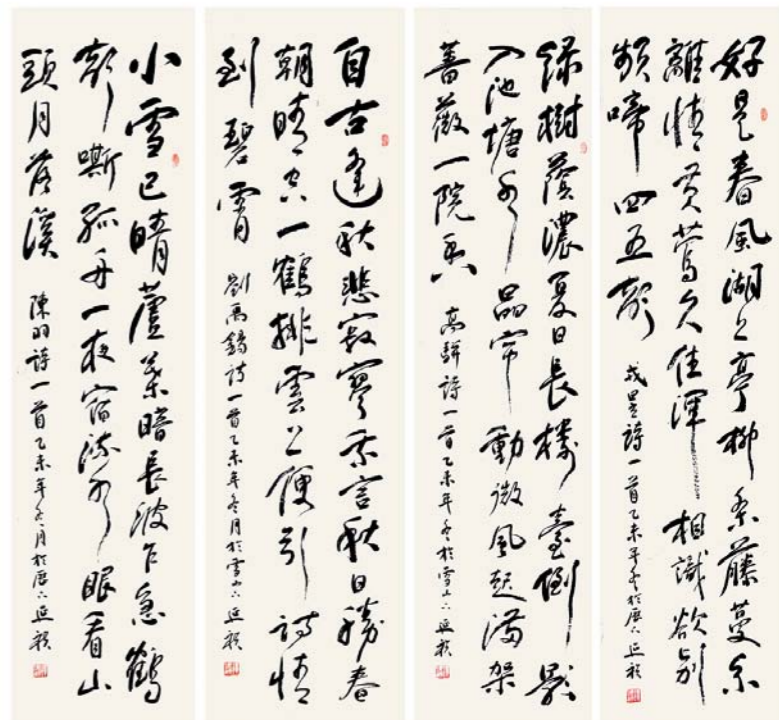 好是春風湖上亭柳条藤蔓系
離情黄莺久住渾相識欲别
頻啼四五聲 戎昱詩一首乙未年冬於
绿樹蔭濃夏日長樓臺倒影
入池塘水晶帘動微風起满架
薔薇一院香 高駢詩一首乙未年冬於雪山
自古逢秋悲寂寥我言秋日勝春
朝晴空一鶴排雲上便引詩情
到碧霄 劉禹錫詩一首乙未年冬月於雪山
小雪已晴蘆葉暗長波乍急鶴
聲嘶孤舟一夜宿流水眼看山
頭月落溪 陳羽詩一首乙未年冬月於